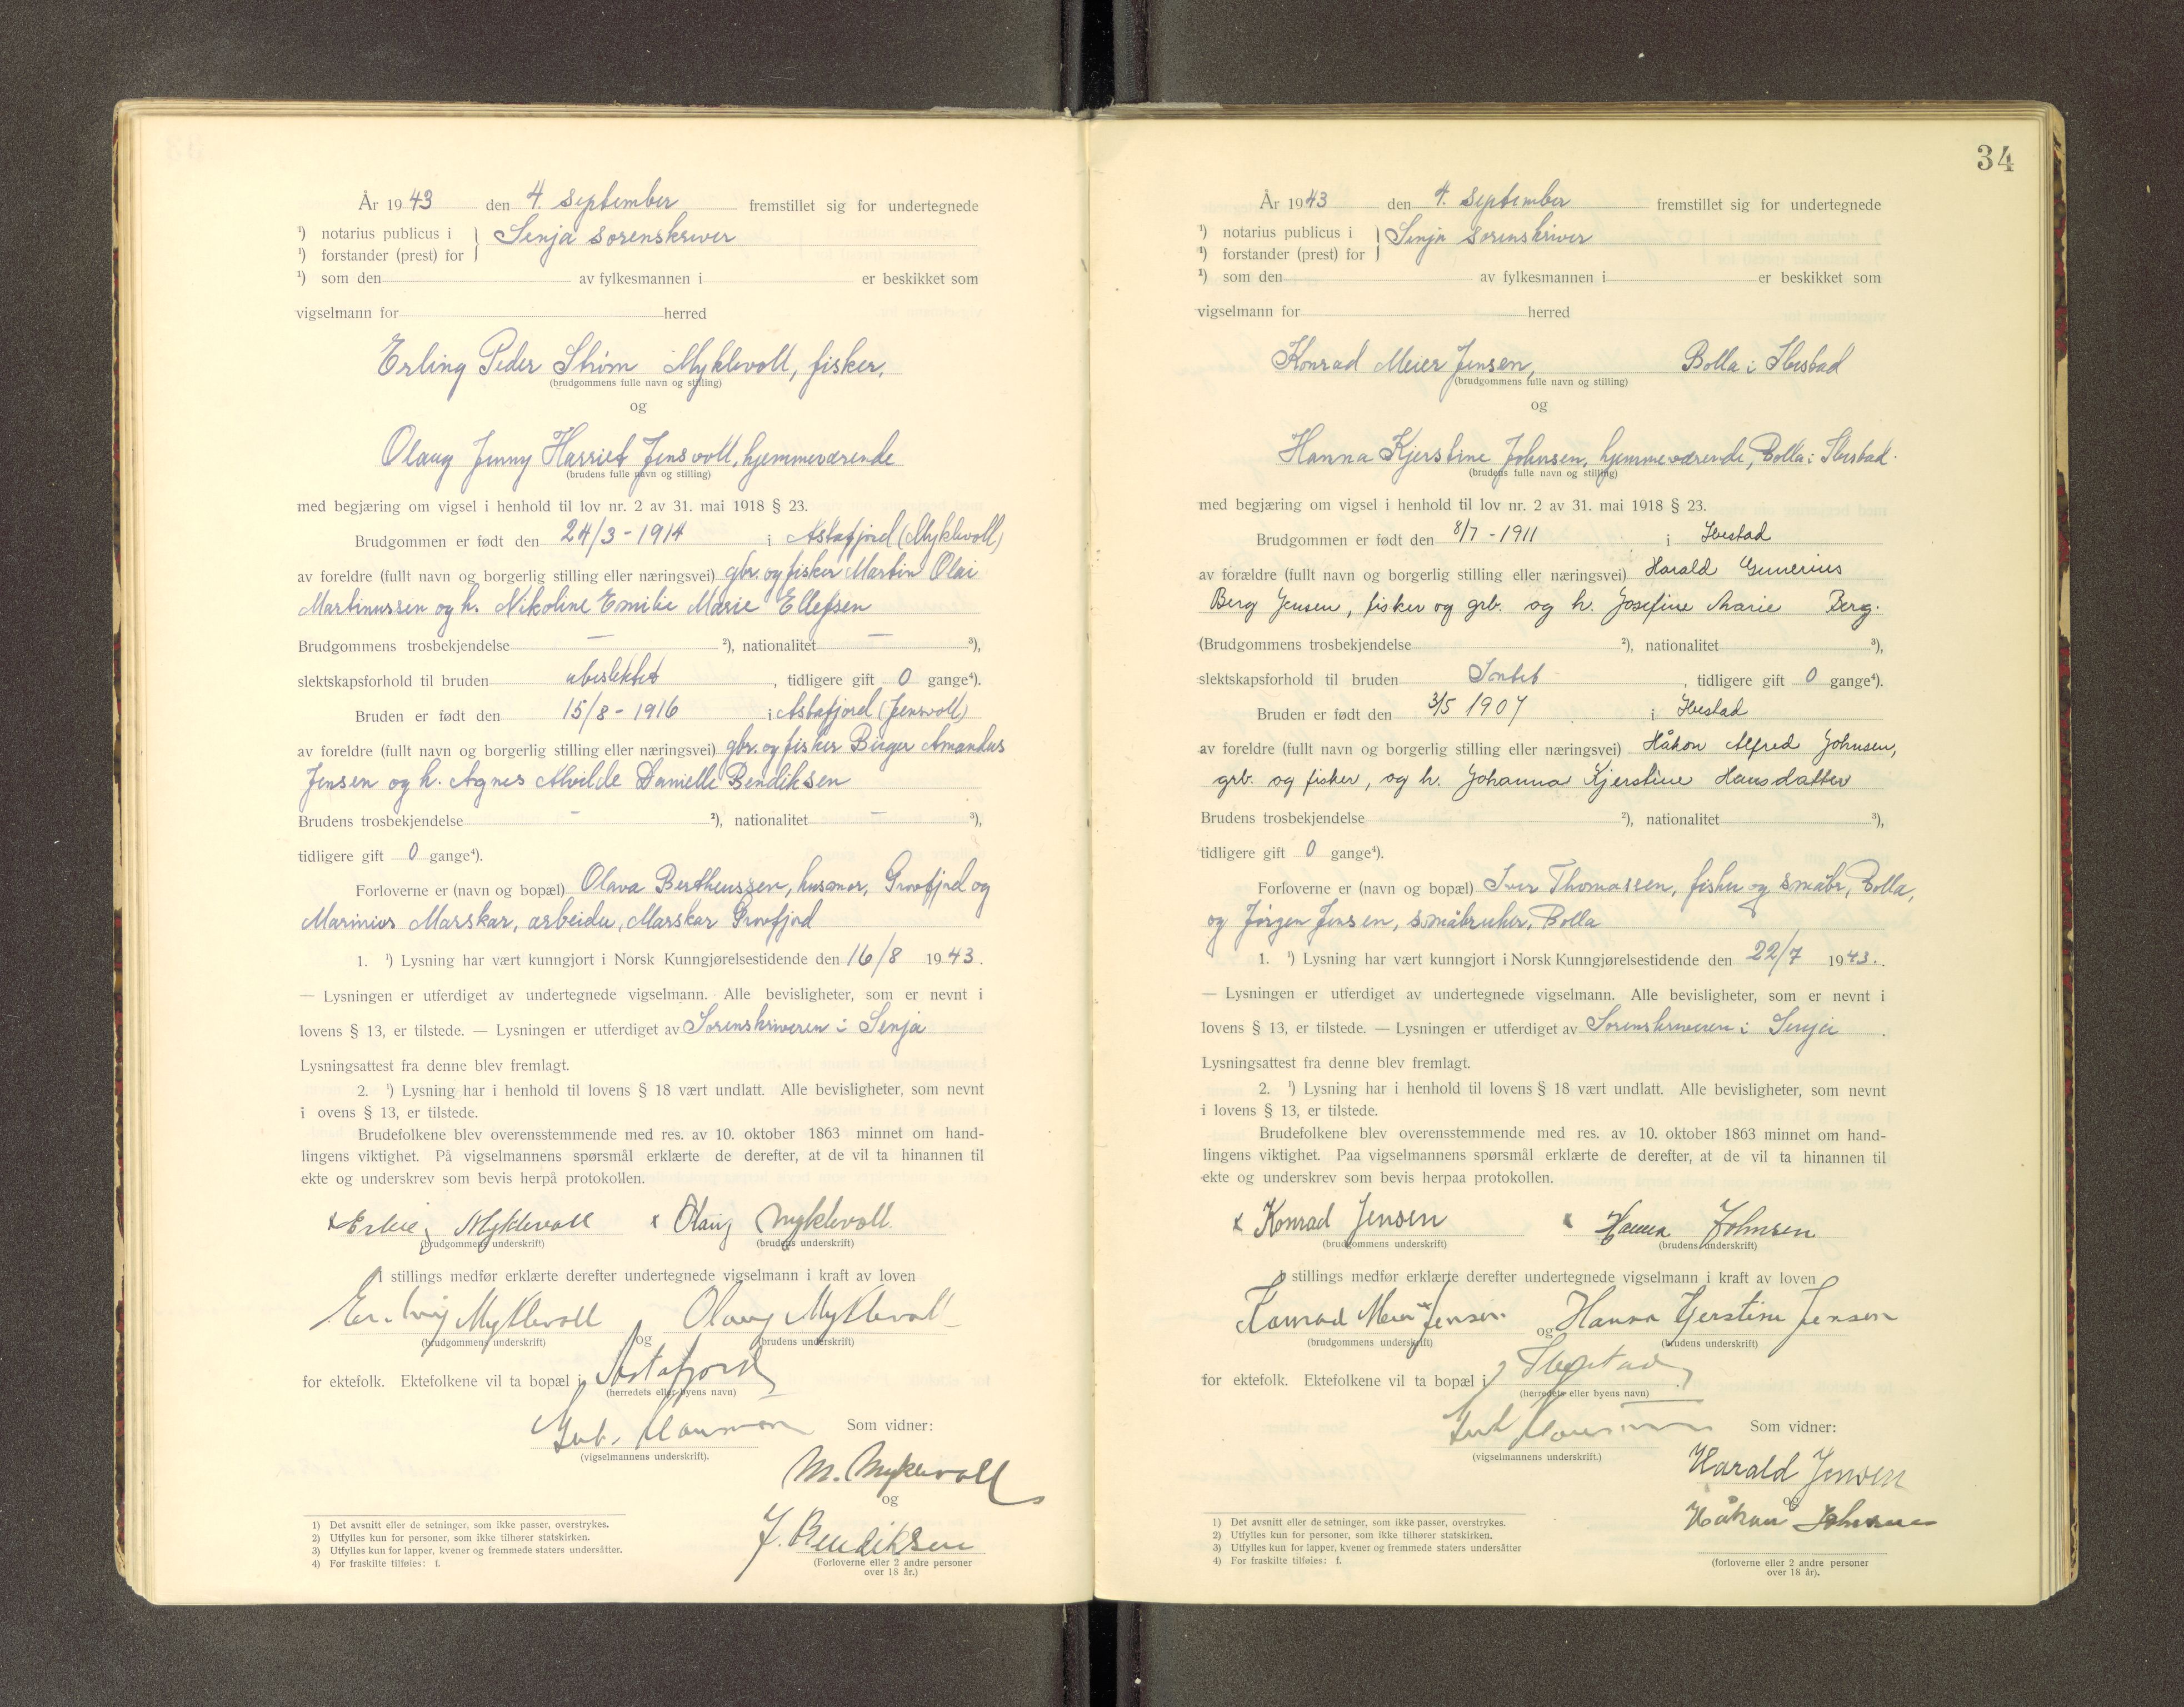 År 1943 den 4. september fremstillet sig for undertegnede
¹) notarius publicus i } Senja sorenskriver
¹) forstander (prest) for
¹) som den av fylkesmannen i er beskikket som
vigselmann for herred
Erling Peder Strøm Myklevoll, fisker.
(brudgommens fulle navn og stilling)
og
Olaug Jenny Harriet Jensvoll, hjemmeværende
(brudens fulle navn og stilling)
med begjæring om vigsel i henhold til lov nr. 2 av 31. mai 1918 § 23.
Brudgommen er født den 24/3 - 1914 i Astafjord (Myklevoll)
av foreldre (fullt navn og borgerlig stilling eller næringsvei) gbr. og fisker Martin Olai
Martinussen og h. Nikoline Emilie Marie Ellefsen
Brudgommens trosbekjendelse — ²), nationalitet — ³),
slektskapsforhold til bruden ubeslektet, tidligere gift 0 gange⁴).
Bruden er født den 15/8 - 1916 i Astafjord (Jensvoll)
av foreldre (fullt navn og borgerlig stilling eller næringsvei) gbr. og fisker Birger Amandus
Jensen og h. Agnes Alvilde Danielle Bendiksen
Brudens trosbekjendelse - ²), nationalitet — ³),
tidligere gift 0 gange⁴).
Forloverne er (navn og bopæl) Olava Bertheussen, husmor, Grovfjord og
Marinius Marskar, arbeider, Marskar Grovfjord
1. ¹) Lysning har vært kunngjort i Norsk Kunngjørelsestidende den 16/8 1943.
— Lysningen er utferdiget av undertegnede vigselmann. Alle bevisligheter, som er nevnt i
lovens § 13, er tilstede. — Lysningen er utferdiget av Sorenskriveren i Senja
Lysningsattest fra denne blev fremlagt.
2. ¹) Lysning har i henhold til lovens § 18 vært undlatt. Alle bevisligheter, som nevnt
i ovens § 13, er tilstede.
Brudefolkene blev overensstemmende med res. av 10. oktober 1863 minnet om hand-
lingens viktighet. På vigselmannens spørsmål erklærte de derefter, at de vil ta hinannen til
ekte og underskrev som bevis herpå protokollen.
x Erling Myklevoll x Olaug Myklevoll
(brudgommens underskrift) (brudens underskrift)
I stillings medfør erklærte derefter undertegnede vigselmann i kraft av loven
Erling Myklevoll og Olaug Myklevoll
(brudgommens underskrift) (brudens underskrift)
for ektefolk. Ektefolkene vil ta bopæl i Astafjord
(herredets eller byens navn)
Som vidner:
(vigselmannens underskrift).
M. Myklevoll
og
J. Bendiksen
(Forloverne eller 2 andre personer
over 18 år.)
1) Det avsnitt eller de setninger, som ikke passer, overstrykes.
2) Utfylles kun for personer, som ikke tilhører statskirken.
3) Utfylles kun for lapper, kvener og fremmede staters undersåtter.
4) For fraskilte tilføies: f.
34
År 1943 den 4. september fremstillet sig for undertegnede
¹) notarius publicus i } Senja sorenskriver
¹) forstander (prest) for
¹) som den av fylkesmannen i er beskikket som
vigselmann for herred
Konrad Meier Jensen, Bolla i Ibestad
(brudgommens fulle navn og stilling)
og
Hanna Kjerstine Johnsen, hjemmeværende, Bolla i Ibestad.
(brudens fulle navn og stilling)
med begjæring om vigsel i henhold til lov nr. 2 av 31. mai 1918 § 23.
Brudgommen er født den 8/7 - 1911 i Ibestad
av forældre (fullt navn og borgerlig stilling eller næringsvei) Harald Gunerius
Berg Jensen, fisker og grb. og h. Josefine Marie Berg.
(Brudgommens trosbekjendelse ²), nationalitet ³),
slektskapsforhold til bruden Intet, tidligere gift 0 gange⁴).
Bruden er født den 3/5 1907 i Ibestad
av foreldre (fullt navn og borgerlig stilling eller næringsvei) Håkon Alfred Johnsen,
grb. og fisker, og h. Johanna Kjerstine Hansdatter
Brudens trosbekjendelse ²), nationalitet ³),
tidligere gift 0 gange⁴).
Forloverne er (navn og bopæl) Iver Thomassen, fisker og småbr, Bolla,
og Jørgen Jensen, småbruker, Bolla
1. ¹) Lysning har vært kunngjort i Norsk Kunngjørelsestidende den 22/7 1943.
— Lysningen er utferdiget av undertegnede vigselmann. Alle bevisligheter, som er nevnt i
lovens § 13, er tilstede. — Lysningen er utferdiget av Sorenskriveren i Senja.
Lysningsattest fra denne blev fremlagt.
2. ¹) Lysning har i henhold til lovens § 18 vært undlatt. Alle bevisligheter, som nevnt
i lovens § 13, er tilstede.
Brudefolkene blev overensstemmende med res. av 10. oktober 1863 minnet om hand-
lingens viktighet. Paa vigselmannens spørsmål erklærte de derefter, at de vil ta hinannen til
ekte og underskrev som bevis herpaa protokollen.
x Konrad Jensen x Hanna Johnsen
(brudgommens underskrift) (brudens underskrift)
I stillings medfør erklærte derefter undertegnede vigselmann i kraft av loven
Konrad Meier Jensen og Hanna Kjerstine Jensen
(brudgommens underskrift) (brudens underskrift)
for ektefolk. Ektefolkene vil ta bopæl i Ibestad
(herredets eller byens navn)
Som vidner:
(vigselmannens underskrift.)
Harald Jensen
og
Håkon Johnsen
(forloverne eller 2 andre personer
over 18 år).
1) Det avsnitt eller de setninger, som ikke passer, overstrykes.
2) Utfylles kun for personer, som ikke tilhører statskirken.
3) Utfylles kun for lapper, kvener og fremmede staters undersåtter
4) For fraskilte tilføies: f.